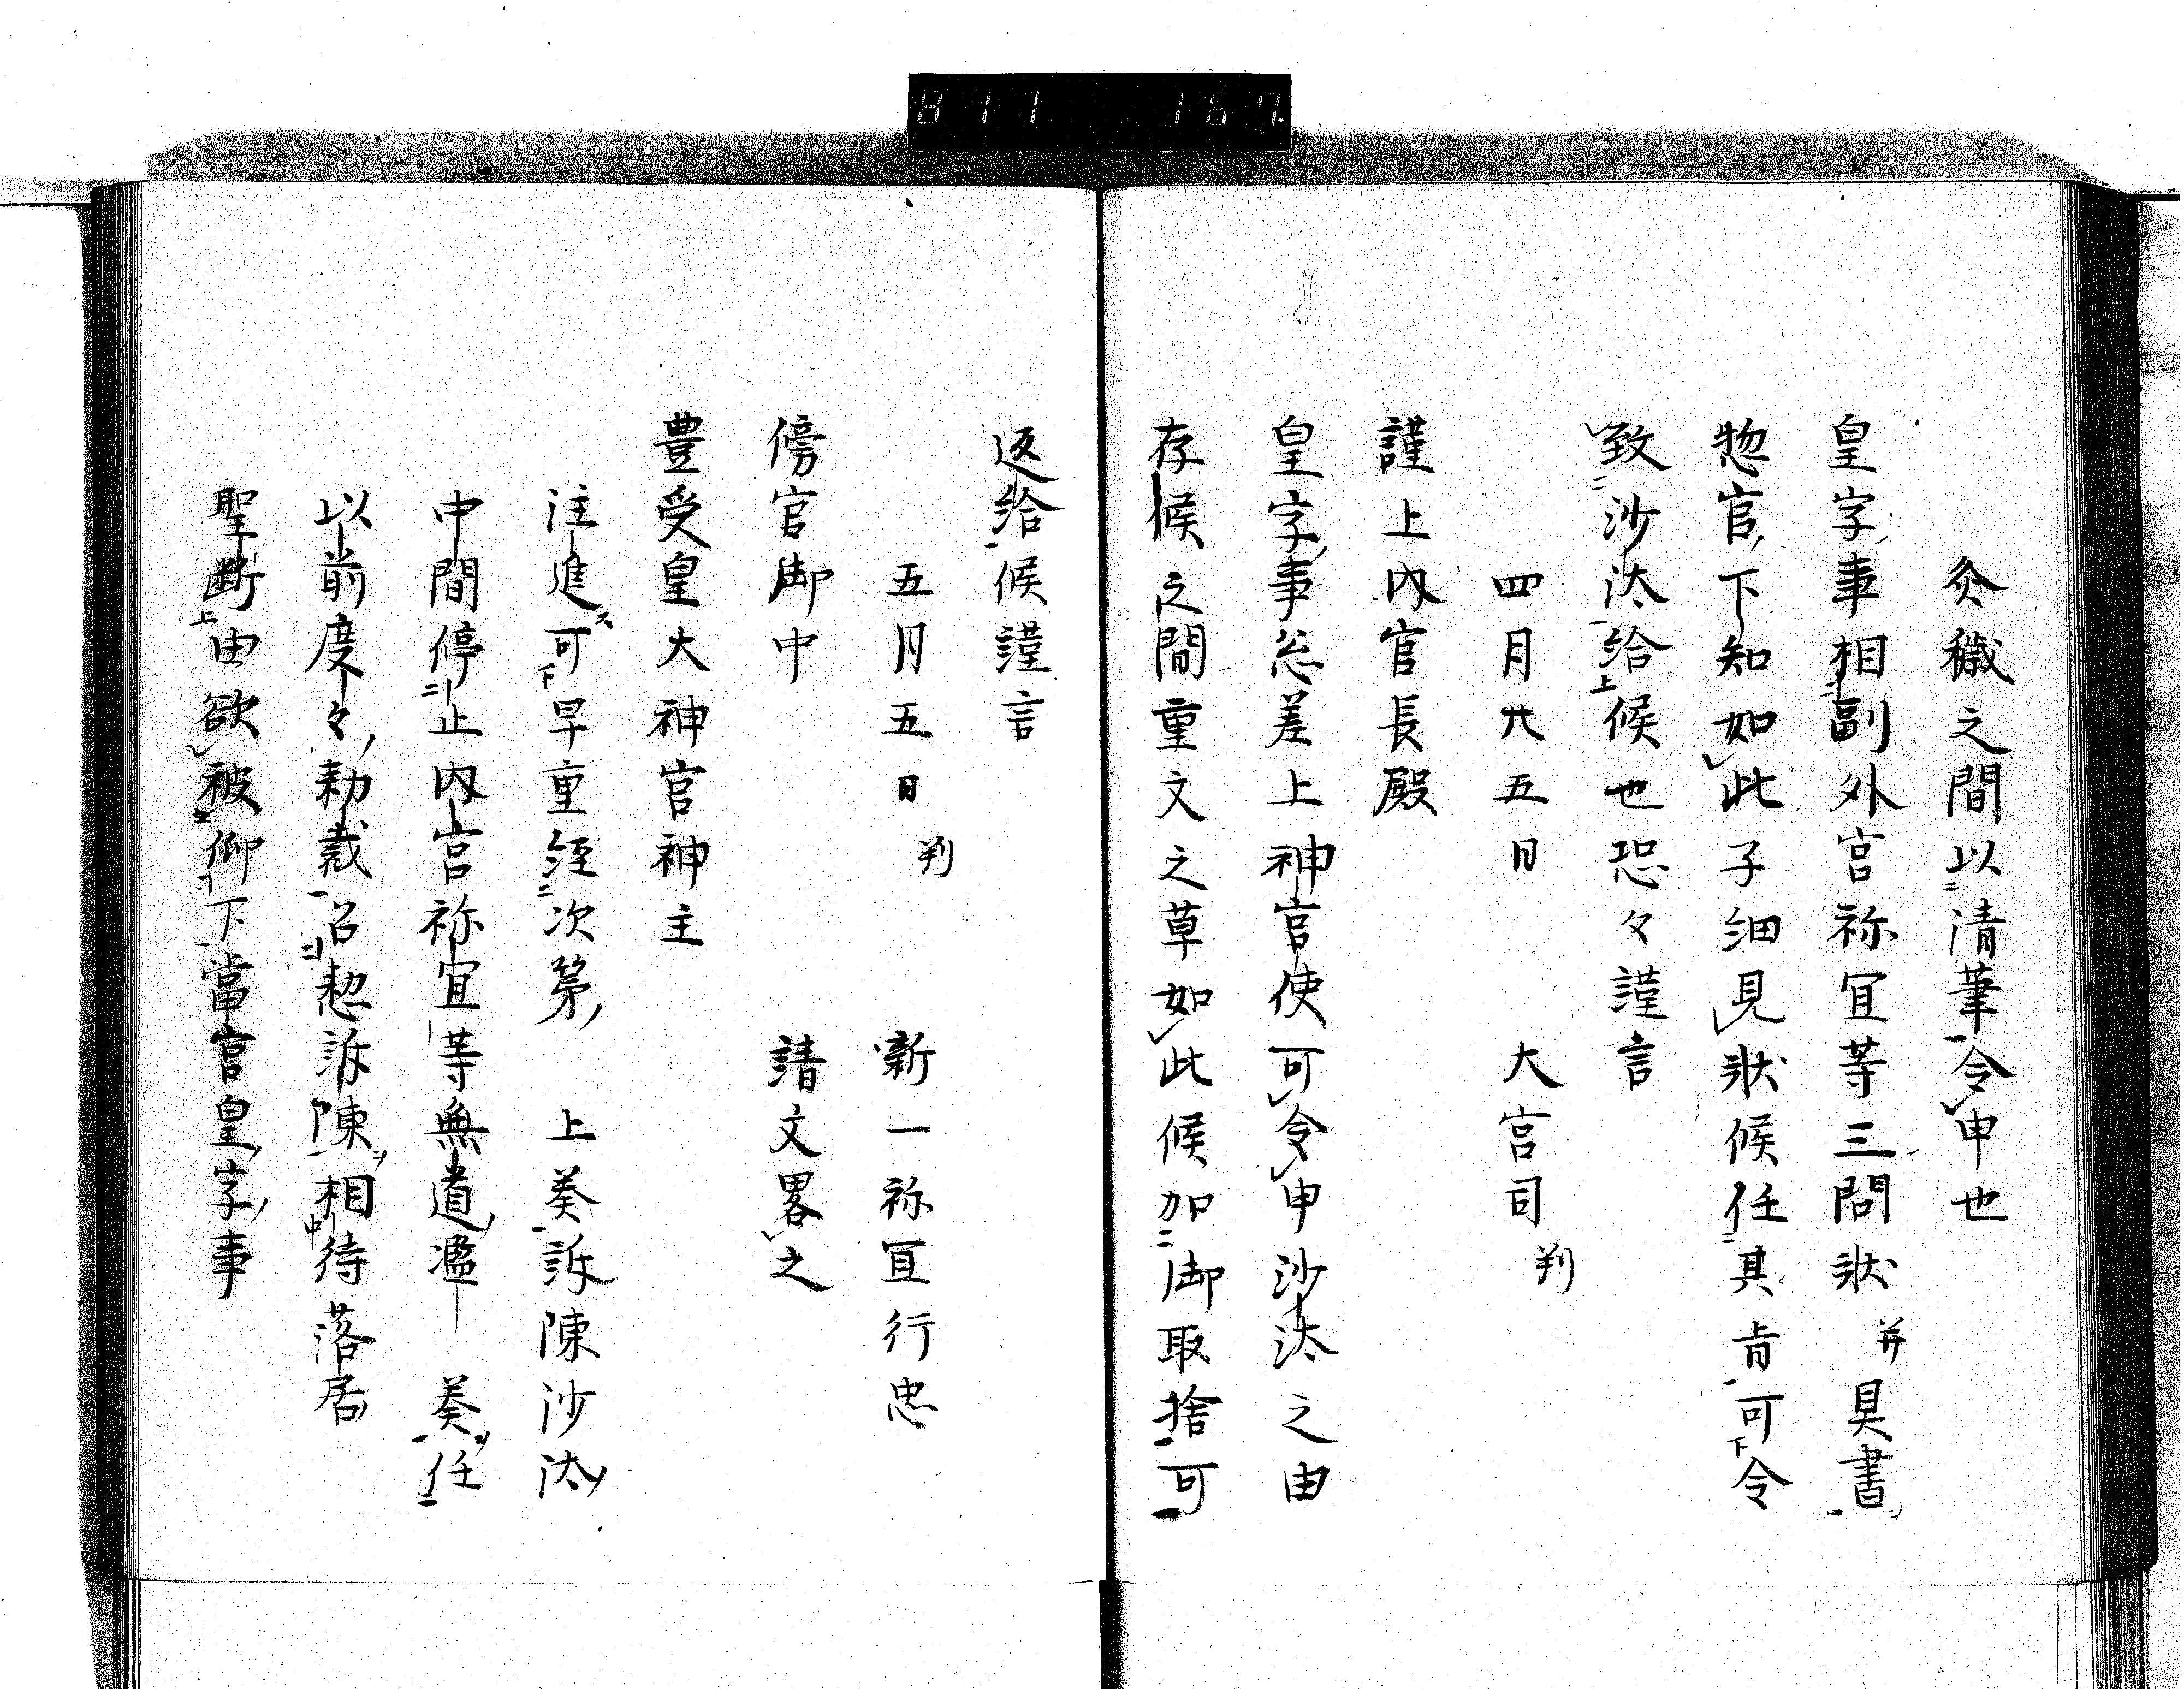 灸穢之間以清筆令申也
皇字事相副外宮祢冝等三問状并具書
惣官下知如此子細見状候任其旨可令
致沙汰給候也恐々謹言
四月廿五日　大宮司判
謹上内宮長殿
皇字事忩差上神官使可令申沙汰之由
存候之間重文之草如此候加御取捨可
返給候謹言
五月五日判　新一祢冝行忠
傍官御中　請文畧之
豊受皇大神宮神主
注進可早重経次第上奏訴陳沙汰
中間停止内宮祢宜等無道濫奏任
以前度々勅裁召整訴陳相待落居
聖断由欲被仰下當宮皇字事